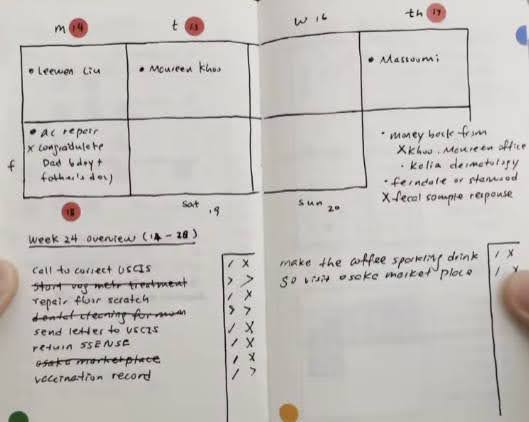 m 14
t 15
w 16
th 17
• Leewen Liu
• Moureen Khoo
• Massoumi
f
• ac repair
x congratulate
Dad bday +
father's day
• money back from
x Khoo. Moureen office
• Kolia dermatology
• ferndale or stanwood
x fecal sample response
18
sat 19
sun 20
Week 24 overview (14 - 20)
call to correct USCIS / x
start veg mehr treatment > >
repair floor scratch / x
dental cleaning for mom > >
send letter to USCIS / x
return SSENSE / x
osaka marketplace / x
vaccination record / >
make the coffee sparkling drink / x
so visit osaka market place / x